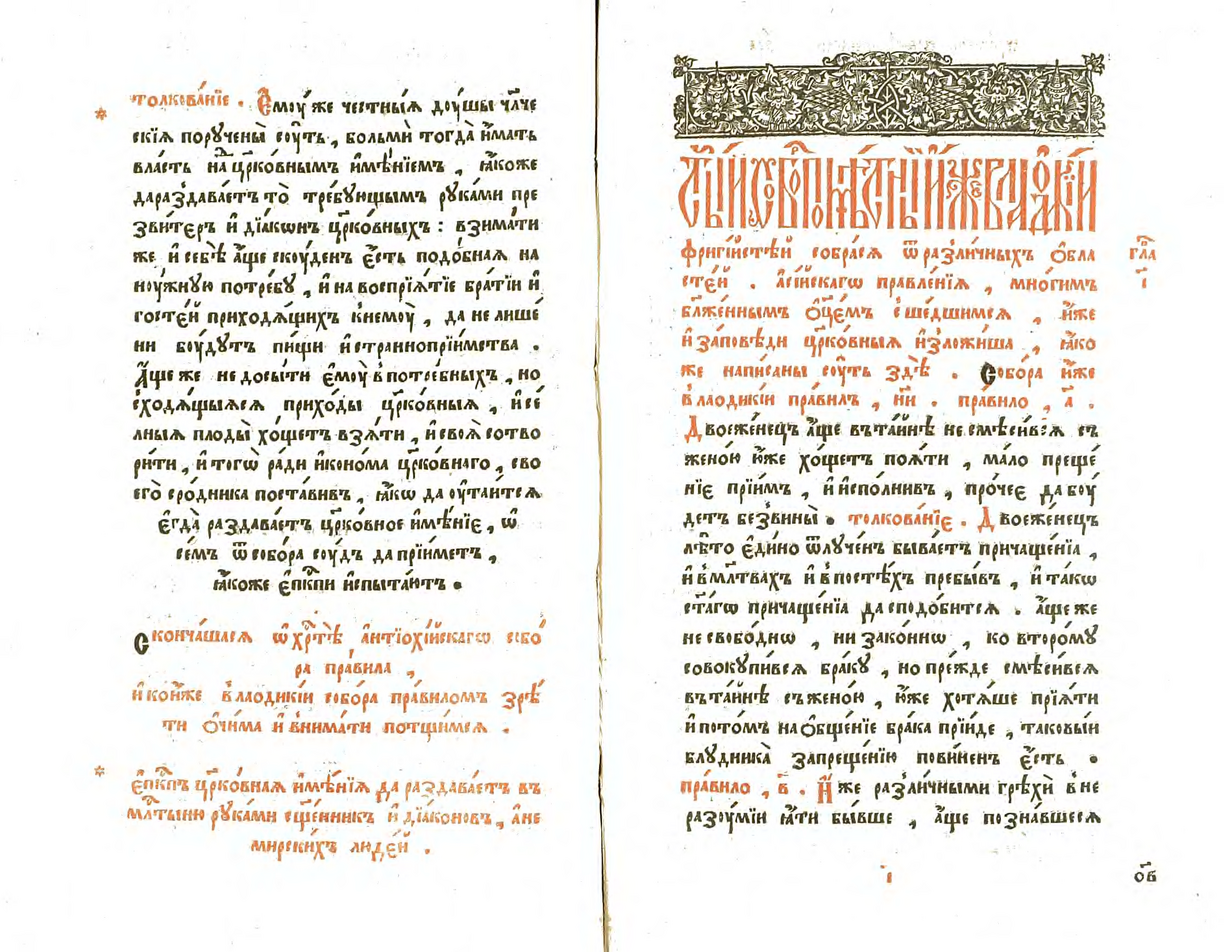 толкова́нїе . Є҆моу́ же честны́ѧ доу́шы чл҃че
скїѧ порꙋчены̀ соу́ть , больмѝ тогда̀ и҆́мать
вла́сть на цр҃ко́внымъ и҆мѣ́нїемъ , ꙗ҆́коже
дараздава́етъ то̀ тре́бꙋющымъ рꙋка́ми пре
зви́теръ и҆ дїа́конъ цр҃ко́вныхъ : взима́ти
же и҆ себѣ̀ а҆́ще скоу́денъ є҆́сть подо́бнаѧ на
ноу́жнꙋю потре́бꙋ , и҆ на воспрїѧ́тїе бра́тїи и҆
госте́й приходѧ́щихъ кнемоу̀ , да не лише
ни боу́дꙋтъ пи́щи и҆ страннопрїи́мства .
А҆́ще же не досы́ти є҆моу̀ в потре́бныхъ , но
сходѧ́щыѧсѧ прихо́ды цр҃ко́вныѧ , и҆ се́
лныѧ плоды̀ хо́щетъ взѧ́ти , и҆ своѧ̀ сотво
ри́ти , и҆ тогѡ̀ ра́ди и҆коно́ма цр҃ко́внаго , сво
его̀ сро́дника поста́вивъ , ꙗ҆́кѡ да ᲂу҆таи́тсѧ
є҆гда̀ раздава́етъ цр҃ко́вное и҆мѣ́нїе , ѡ҆
се́мъ ѿ собо́ра соу́дъ да прїи́метъ ,
ꙗ҆́коже є҆пк҃пи и҆спыта́ютъ .
Сконча́шасѧ ѡ҆ хр҃тѣ̀ а҆нтїохі́йскагѡ собо́
ра пра́вила ,
и҆ кои҆́же в лаодикі́и собо́ра пра́виломъ зрѣ́
ти ѻ҆чи́ма и҆ внима́ти потщи́мсѧ .
є҆пк҃пъ цр҃ко́внаѧ и҆мѣ́нїѧ да раздава́етъ въ
мл҃тыню рꙋка́ми сщ҃е́нникъ и҆ дїа́коновъ , а҆ не
мирски́хъ люде́й .
ст҃ы́й собо́ръ помѣ́стный и҆́же в лаодикі́и
фригі́йстѣй собра́сѧ ѿ разли́чныхъ ѻ҆бла
сте́й . а҆сі́йскагѡ правле́нїѧ , мно́гимъ
бл҃же́ннымъ ѻ҆ц҃е́мъ сше́дшимсѧ , и҆́же
и҆ за́повѣди цр҃ко́вныѧ и҆зложи́ша , ꙗ҆́ко
же напи́саны соу́ть здѣ̀ . Собо́ра и҆́же
в лаодикі́и пра́вилъ , н҃и . пра́вило , а҃ .
Двоеже́нецъ а҆́ще вта́йнѣ не смѣси́всѧ съ
жено́ю ю҆́же хо́щетъ поѧ́ти , ма́ло преще́
нїе прїи́мъ , и҆ и҆спо́лнивъ , про́чее да боу́
детъ без̾вины̀ . толкова́нїе . Двоеже́нецъ
лѣ́то є҆ди́но ѿлꙋче́нъ быва́етъ причаще́нїа ,
и҆ в мл҃твахъ и҆ в посте́хъ пребы́въ , и҆ та́кѡ
ст҃а́гѡ причаще́нїа да сподо́битсѧ . а҆́ще же
не свобо́днѡ , ни зако́ннѡ , ко второ́мꙋ
совокупи́всѧ бра́кꙋ , но пре́жде смѣси́всѧ
вта́йнѣ съ жено́ю , ю҆́же хотѧ́ше прїѧ́ти
и҆ пото́мъ на ѻ҆бще́нїе бра́ка прїи́де , таковы́и
блꙋдника̀ запреще́нїю пови́ненъ є҆́сть .
пра́вило , в҃ . И҆́же разли́чными грѣхѝ в не
разоу́мїи ꙗ҆́ти бы́вше , а҆́ще позна́вшесѧ
гла҃
і҃
ѻ҃в